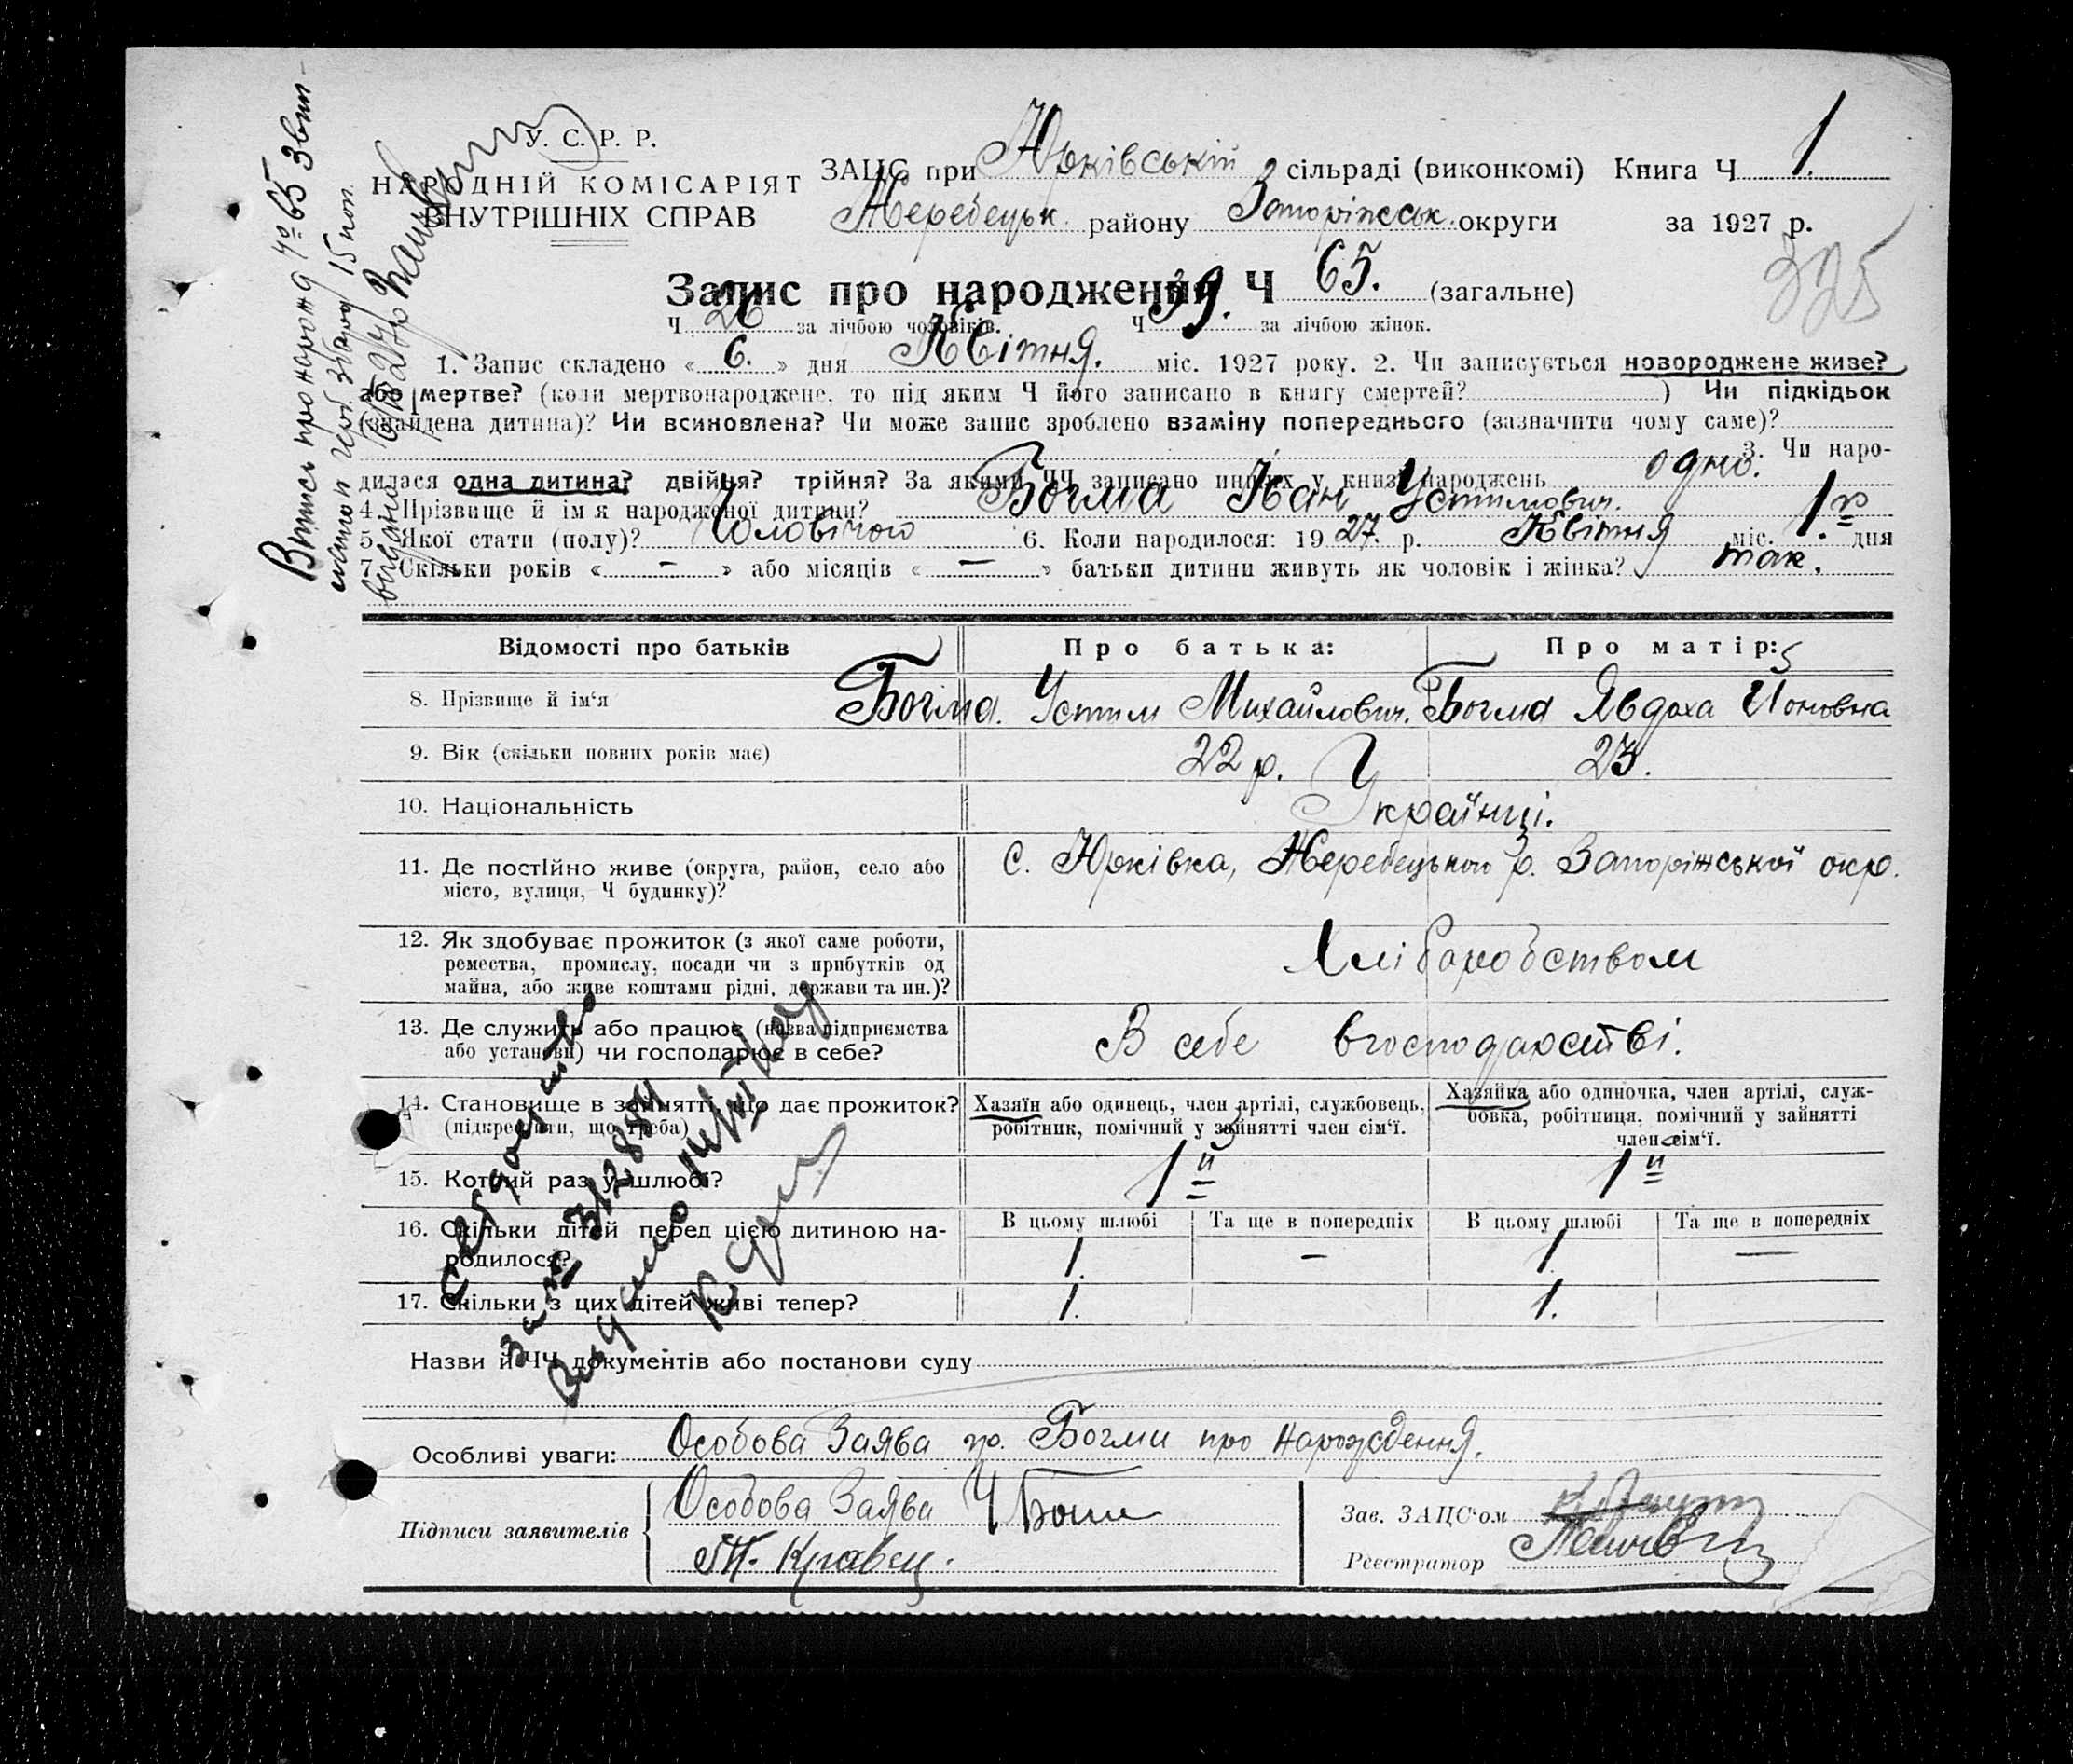 У. С. Р. Р.
НАРОДНІЙ КОМІСАРІЯТ
ВНУТРІШНІХ СПРАВ
ЗАЦС при Юрківській сільраді (виконкомі) Книга Ч 1.
Жеребецьк. району Запоріжськ. округи за 1927 р.
325
Запис про народження Ч 65. (загальне)
Ч 26 за лічбою чоловіків. Ч 39. за лічбою жінок.
1. Запис складено « 6. » дня Квітня. міс. 1927 року. 2. Чи записується новороджене живе?
або мертве? (коли мертвонароджене, то під яким Ч його записано в книгу смертей? ) Чи підкідьок
(знайдена дитина)? Чи всиновлена? Чи може запис зроблено взаміну попереднього (зазначити чому саме)?
3. Чи наро-
дилася одна дитина? двійня? трійня? За якими ЧЧ записано инших у книзі народжень одно.
4. Прізвище й ім'я народженої дитини? Богма Іван Устимович.
5. Якої стати (полу)? Чоловічої 6. Коли народилося: 1927. р. Квітня міс. 1го дня
7. Скільки років « - » або місяців « — » батьки дитини живуть як чоловік і жінка? так.
Відомості про батьків Про батька: Про матір:
8. Прізвище й ім'я Богма. Устим Михайлович. Богма Явдоха Йоновна
9. Вік (скільки повних років має) 22 р. 23.
10. Національність Українці.
11. Де постійно живе (округа, район, село або
місто, вулиця, Ч будинку)? С. Юрківка, Жеребецького р. Запоріжської окр.
12. Як здобуває прожиток (з якої саме роботи,
ремества, промислу, посади чи з прибутків од
майна, або живе коштами рідні, держави та ин.)? Хліборобством
13. Де служить або працює (назва підприємства
або установи) чи господарює в себе? В себе в господарстві.
14. Становище в зайнятті, що дає прожиток?
(підкреслити, що треба)
Хазяїн або одинець, член артілі, службовець,
робітник, помічний у зайнятті член сім'ї.
Хазяйка або одиночка, член артілі, служ-
бовка, робітниця, помічний у зайнятті
член сім'ї.
15. Котрий раз у шлюбі? 1й 1й
16. Скільки дітей перед цією дитиною на-
родилося?
В цьому шлюбі Та ще в попередніх В цьому шлюбі Та ще в попередніх
1. — 1. —
17. Скільки з цих дітей живі тепер? 1. 1.
Назви й ЧЧ документів або постанови суду
Особливі уваги: Особова Заява гр. Богми про народження.
Підписи заявителів Особова Заява
Кравец.
Зав. ЗАЦС'ом
Реєстратор